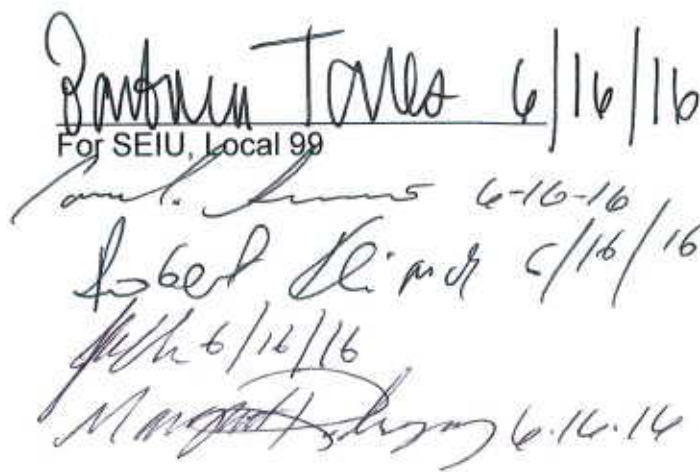 Barbara Torres 6/16/16
For SEIU, Local 99
6-16-16
Robert 6/16/16
6/16/16
Margaret 6.16.16